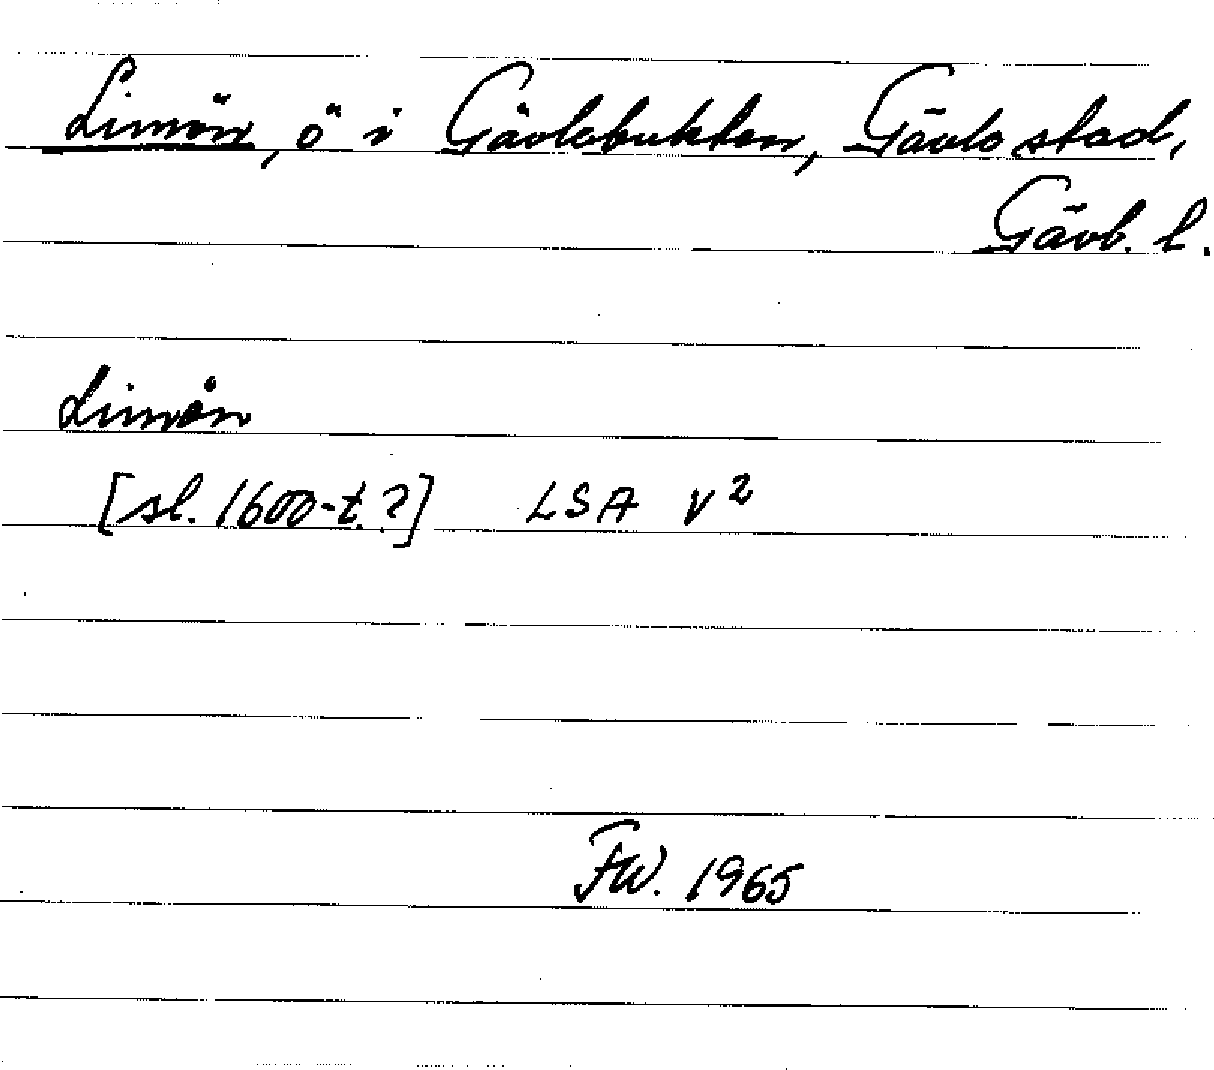 Limön, ö i Gävlebukten, Gävle stad,
Gävb. l.
Limön
[sl. 1600-t.?] LSA V²
FW. 1965